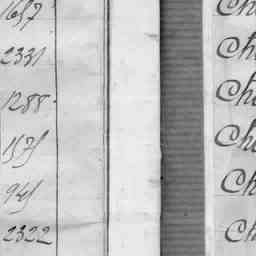 1657
2331
1288
1575
945
2322
Ch
Ch
Ch
Ch
Ch
Ch